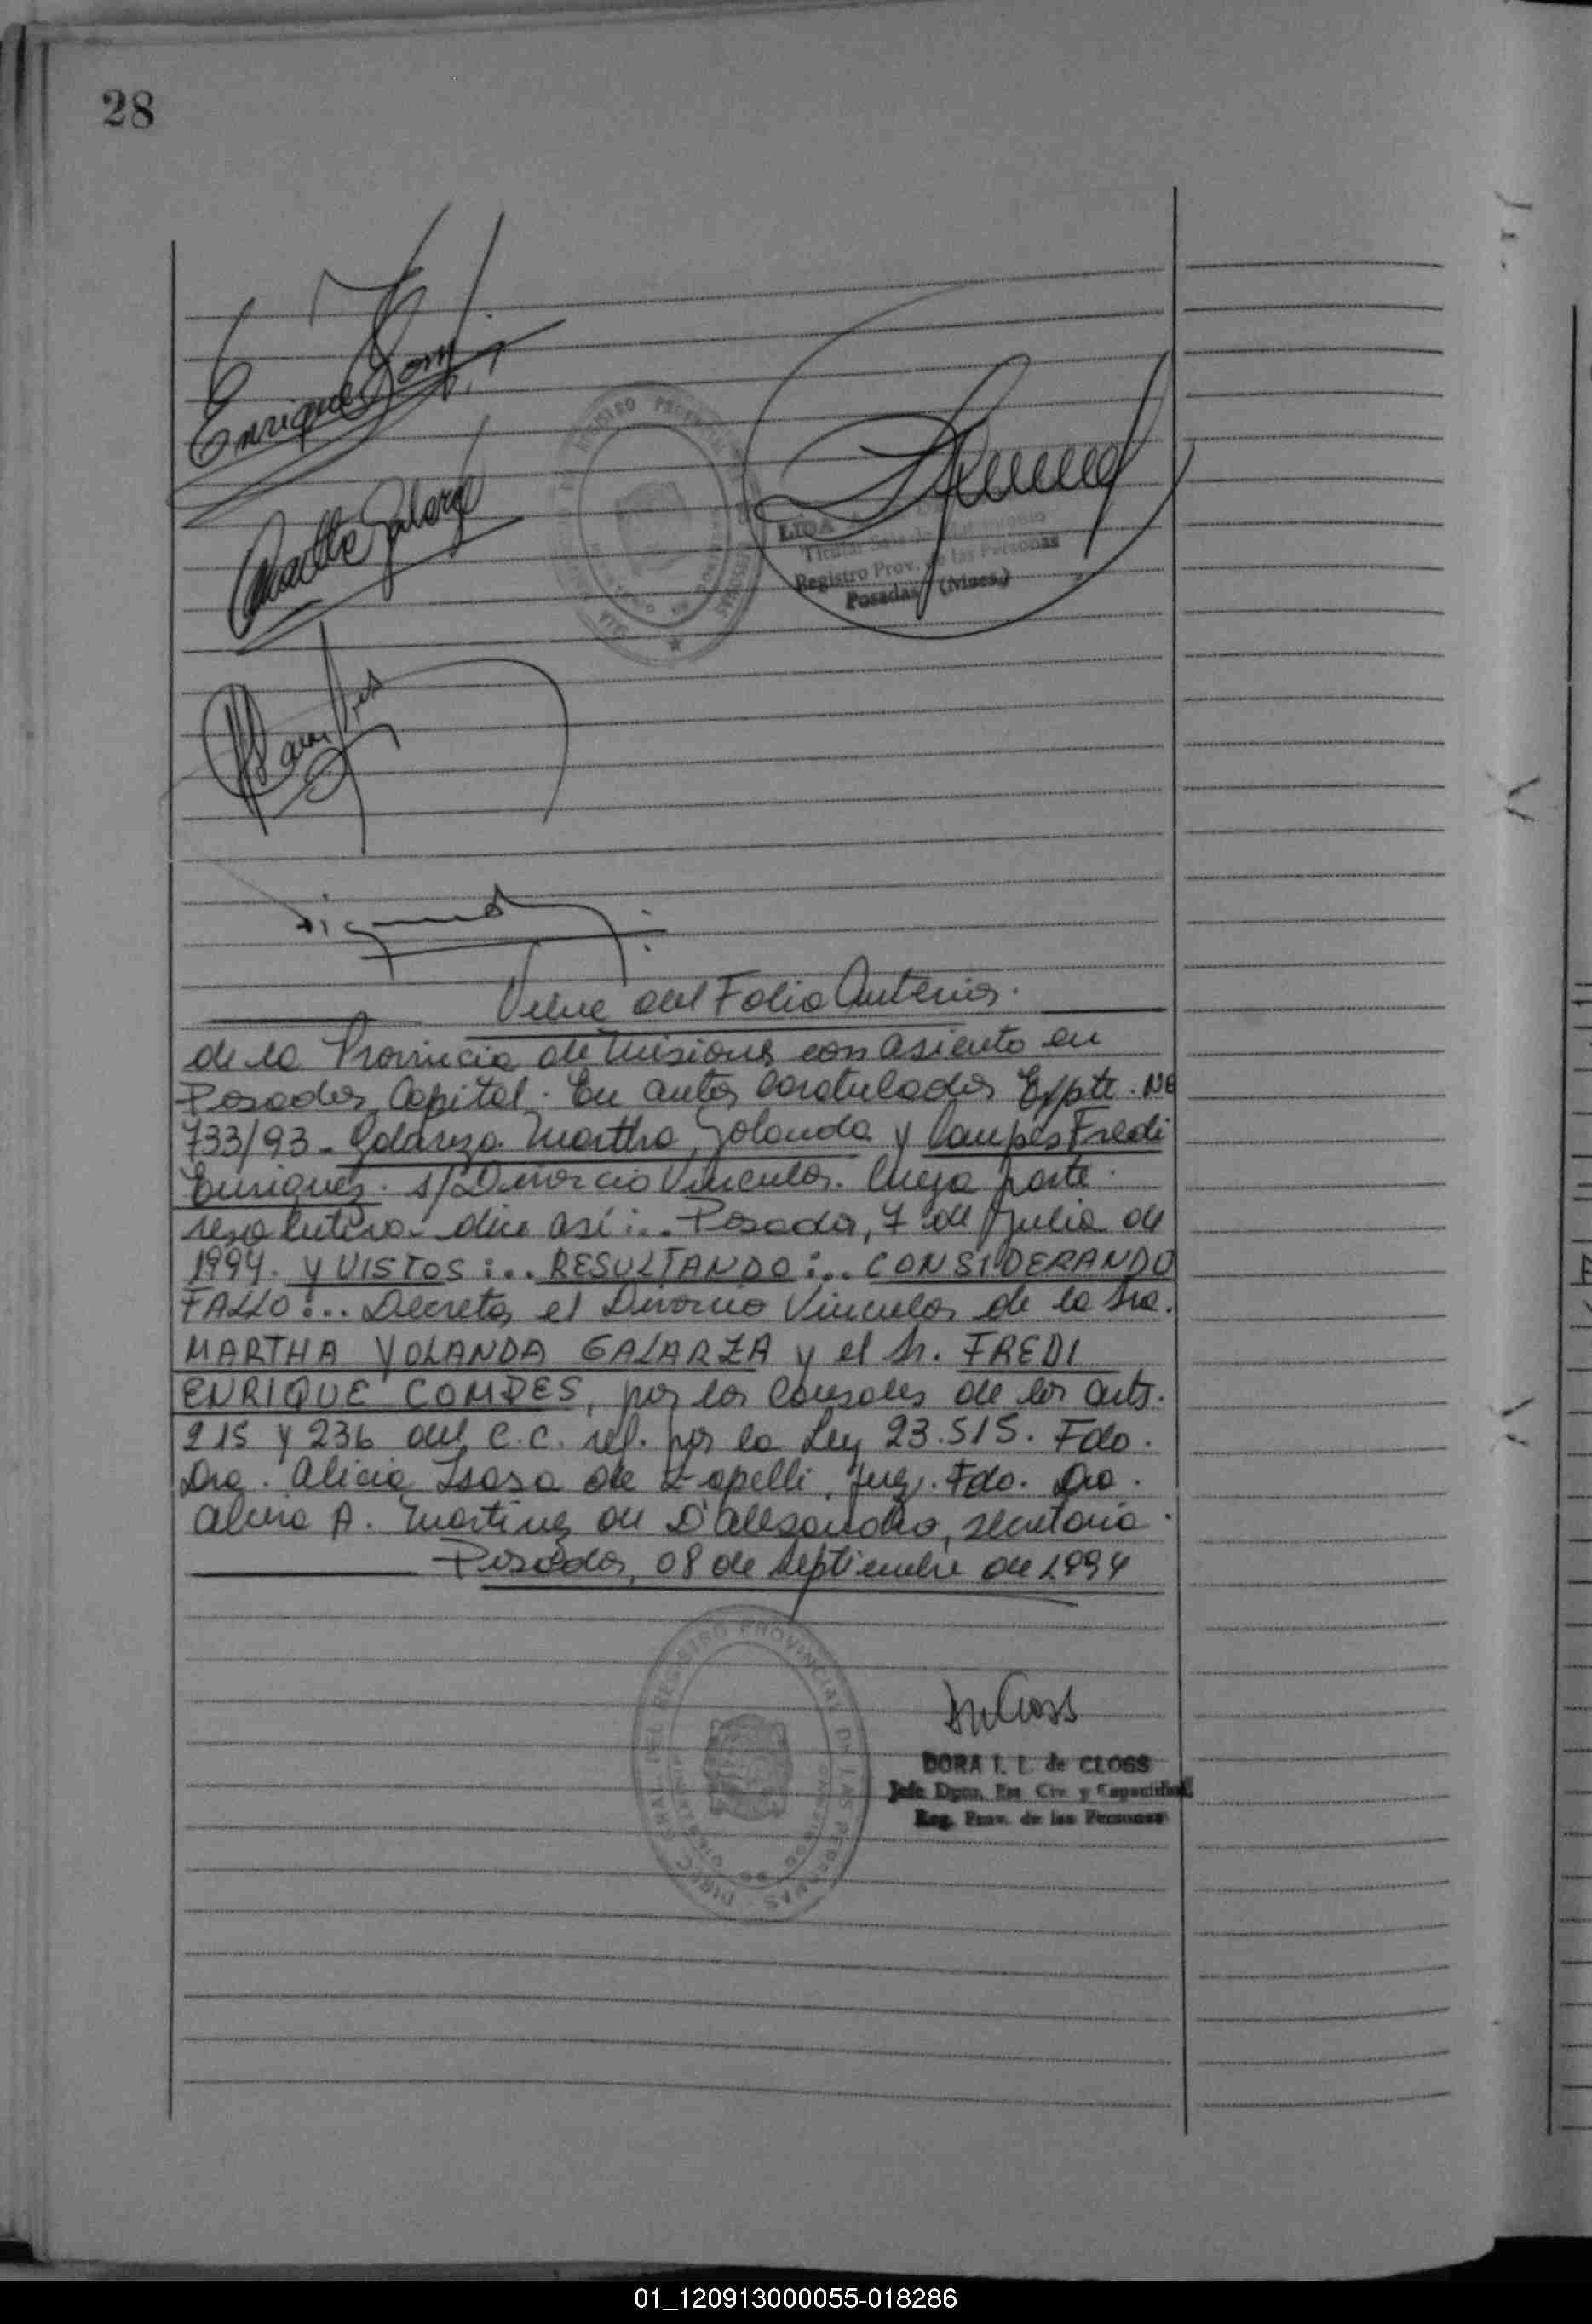 28
Enrique
Martha Galarza
REGISTRO PROVINCIAL DE LAS PERSONAS
LIDA
Titular Sala de Matrimonio
Registro Prov. de las Personas
Posadas (Mnes.)
Viene del Folio Anterior.
de la Provincia de Misiones con asiento en
Posadas Capital. En autos Caratulados Expte. Nº
733/93 - Galarza Martha Yolanda y Campes Fredi
Enrique s/ Divorcio Vincular. Cuya parte
resolutiva dice así:.. Posadas, 7 de Julio de
1994. Y VISTOS:.. RESULTANDO:.. CONSIDERANDO
FALLO:.. Decretar el Divorcio Vincular de la Sra.
MARTHA YOLANDA GALARZA y el Sr. FREDI
ENRIQUE COMPES, por las Causales de los arts.
215 y 236 del C.C. ref. por la Ley 23.515. Fdo.
Dra. Alicia de Zapelli, Juez. Fdo. Dra.
A. Martinez de D'Alesandro, secretaria.
Posadas, 08 de Septiembre de 1994
DIREC. GRAL. DEL REGISTRO PROVINCIAL DE LAS PERSONAS
DORA I. L. de CLOSS
Jefe Dpto. Est. Civ. y Capacidad
Reg. Prov. de las Personas
01_120913000055-018286